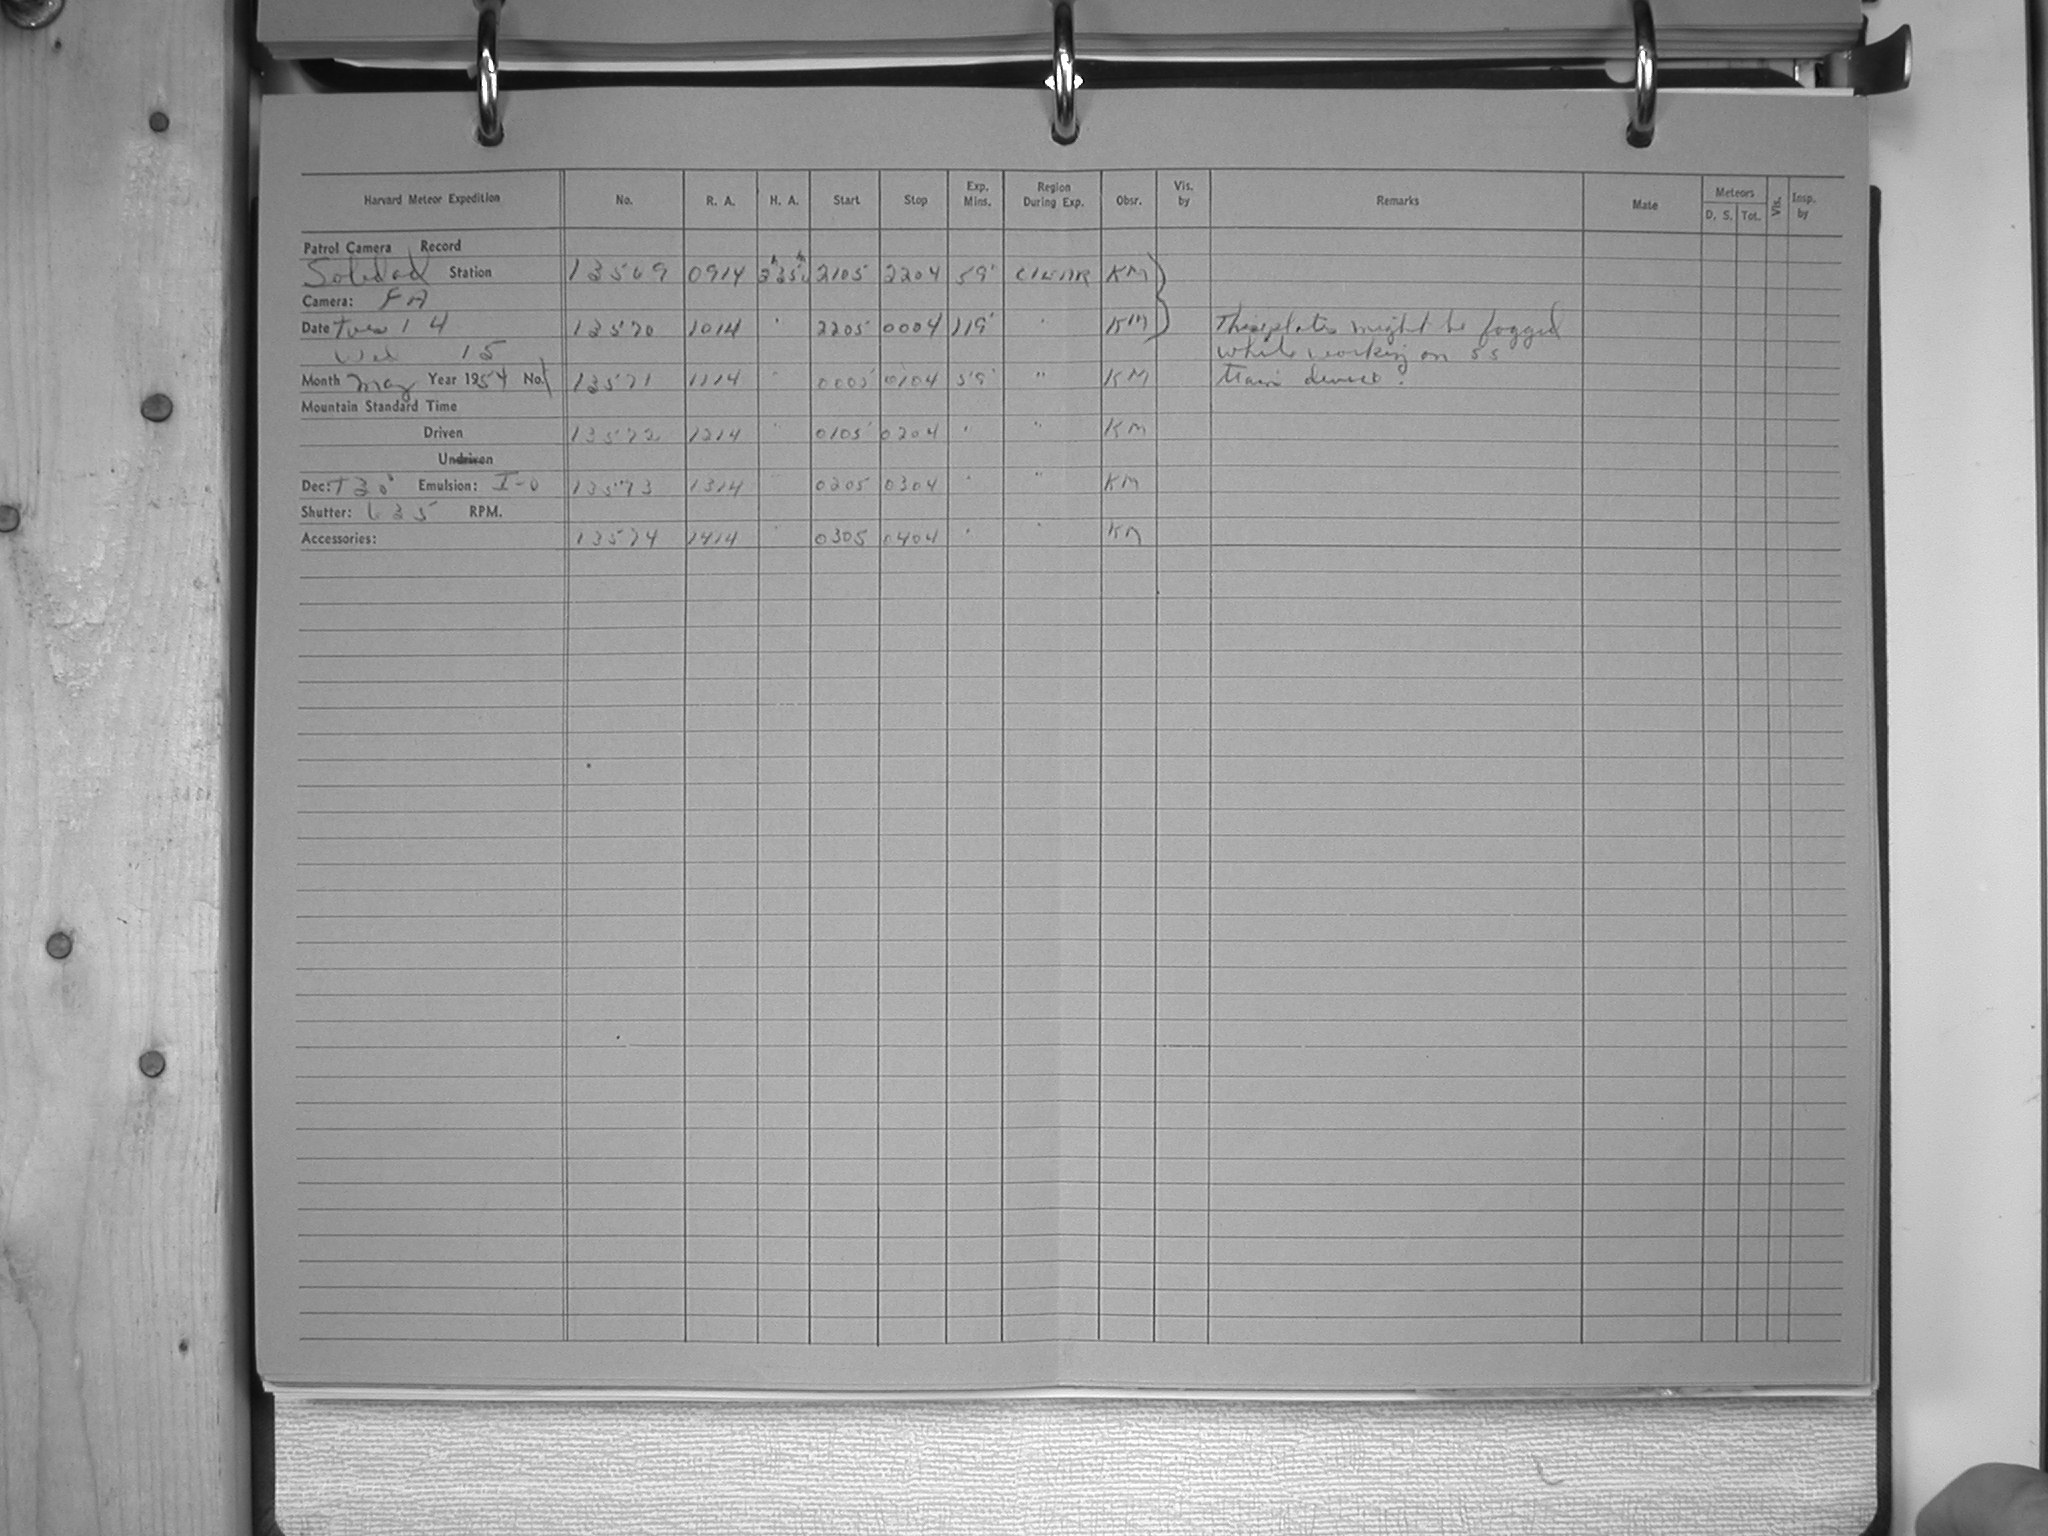 Harvard Meteor Expedition No. R. A. H. A. Start Stop Exp. Mins. Region During Exp. Obsr. Vis. by Remarks Mate Meteors D. S. Tot. Vis. Insp. by
Patrol Camera Record
Soledad Station 13569 0914 2105 2204 59' CLEAR KM
Camera: FA
Date Tues 14 13570 1014 " 2205 0004 119' " KM These plates might be fogged
Wed 15 while working on SS
Month May Year 1954 No. 1 13571 1114 " 0005 0104 59' " KM train device.
Mountain Standard Time
Driven 13572 1214 " 0105 0204 " " KM
Undriven
Dec: +30° Emulsion: I-0 13573 1314 " 0205 0304 " KM
Shutter: 635 RPM.
Accessories: 13574 1414 " 0305 0404 " " KM